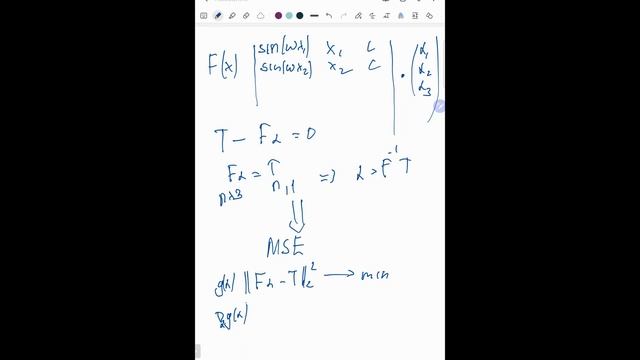 F(x) | sin(ωx₁) x₁ C | · ( α₁
sin(ωx₂) x₂ C | α₂
α₃ )
T - Fα = 0
Fα = T => α = F⁻¹ T
n×3 n,1
MSE
g(α) ||Fα - T||₂² → min
g(α)